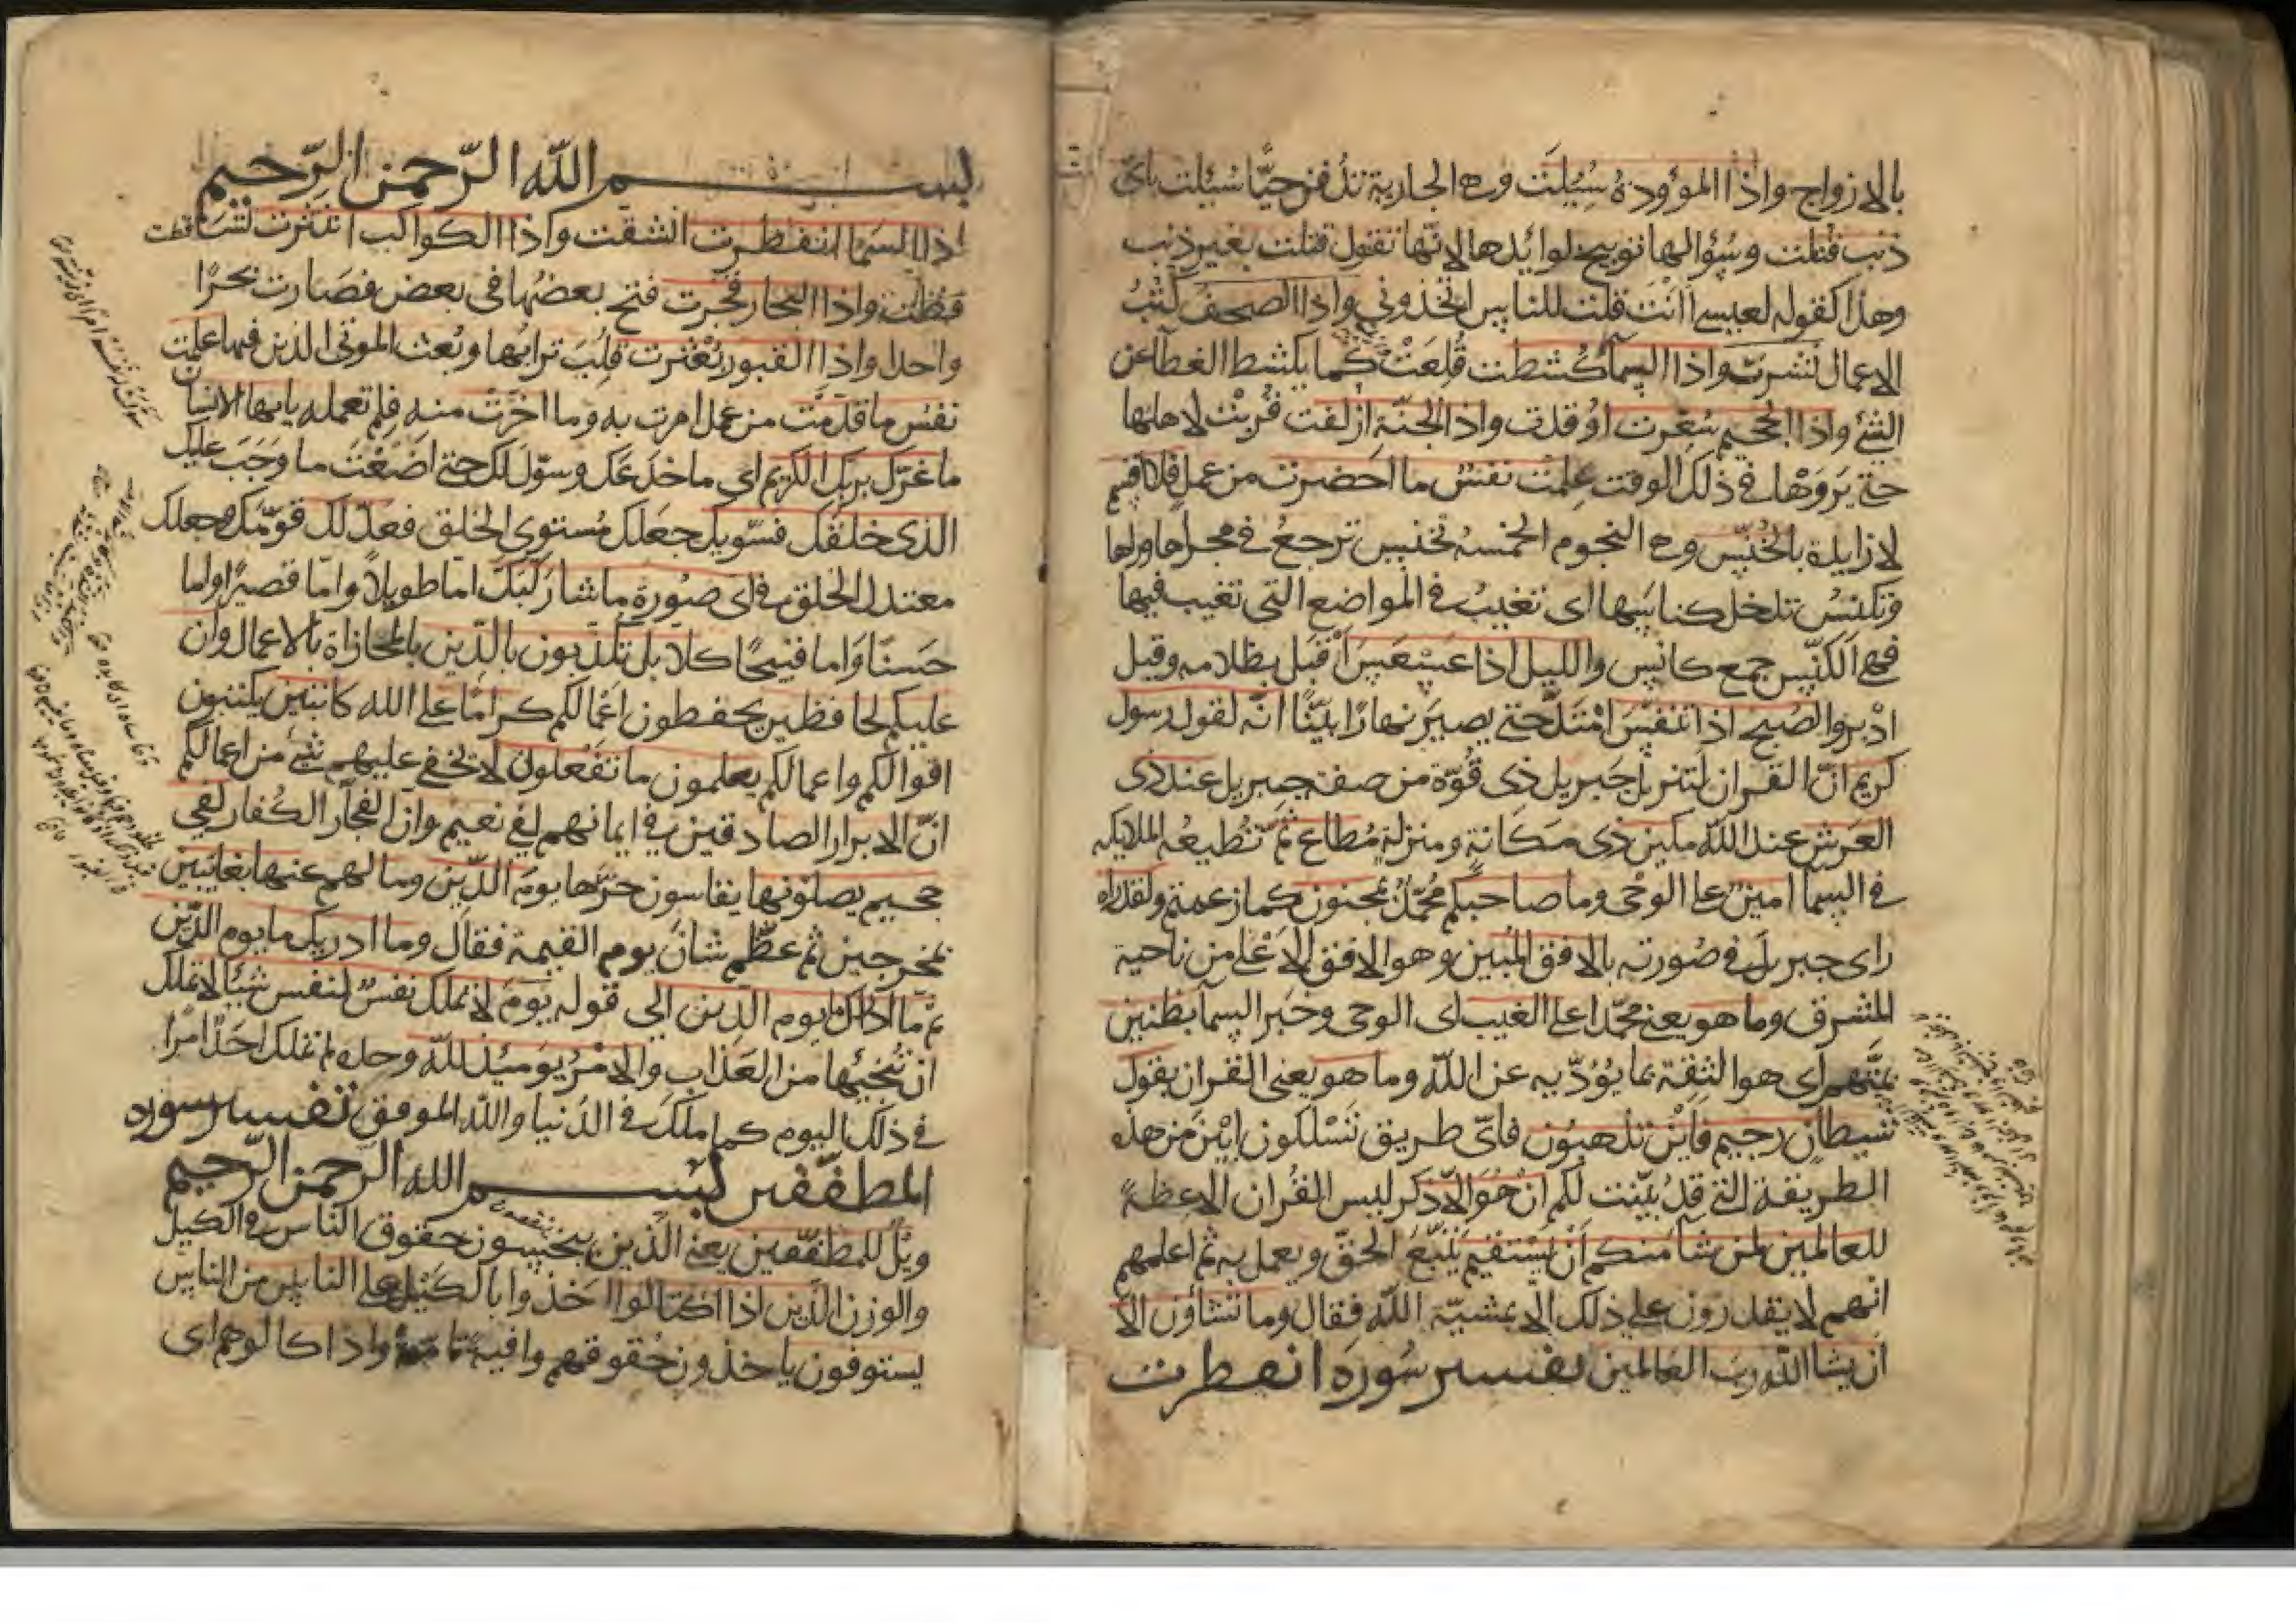 بالازواج واذا الموؤودة سُئِلَت وهى الجارية تدفن حيًّا سُئِلت باىّ
ذنب قتلت وسُؤالها توبيخ لوائدها لانّها تقول قتلت بغير ذنب
وهذا كقوله لعيسى اأنتَ قلت للناس اتخذونى واذا الصحف كُتُبُ
الاعمال نشرت واذا السمآ كُشطت قُلِعَتْ كما يكشط الغطآ عن
الشئ واذا الجحيم سُعّرت اوقدت واذ الجنّة ازلفت قُرِبَت لاهلها
حتى يَرَوْها فى ذلك الوقت عِلِمَت نفسٌ ما احَضرت من عمل فلا اقسم
لا زايدة بالخُنّس وهى النجوم الخمسة تخنس ترجعُ فى مجراها وراها
وتكنسُ تدخل كناسها اى تغيبُ فى المواضع التى تغيب فيها
فهى الكُنّس جمع كانس والليل اذا عَسْعَسَ اَقْبَل بظلامه وقيل
ادْبر والصُبح اذا تنفسَ امْتَدَّ حتى يصيرَ نهارًا بيّنًا انّه لقول رسول
كريم انّ القران لتنزيل جَبريل ذى قُوّة من صفة جبريل عند ذى
العَرش عند اللّه مكين ذى مَكَانةٍ ومنزلةٍ مُطاعٍ ثَمّ تُطيعُه الملايكه
فى السمآ امين على الوحى وما صاحبكم مُحمّدٌ بمجنون كما زعمتم ولقد راه
راى جبريلَ فى صُورته بالافق المُبين وهو الافق الاَعْلى من ناحية
المشرق وما هو يعنى محمّدا على الغيب اى الوحى وخبر السمآ بظنين
بمتّهم اى هو الثقة بما يُؤدّيه عن اللّه وما هو يعنى القران بقول
شيطانٍ رجيم فاَيْنَ تذهبُون فاىّ طريق تَسْلكون اَبْيَن من هذه
الطريقة التى قدْ بُيّنت لكم ان هُوَ الاّ ذكر ليس القُران الا عِظةً
للعالمين لمن شآ منكم اَنْ يَسْتقيم يَتّبعَ الحقّ ويعمل به ثم اعلمهم
انهم لا يقدرون على ذلك الّا بمشيّة اللّه فقال وما تشآؤن الّا
ان يشآ اللّه ربّ العالمين تفسير سُورة انفطرت
بسم اللّه الرّحمن الرّحيم
اذا السّمآ انفطرت انشقت واذا الكواكب انتثرت تساقطت
واذا البحار فجّرت فتح بعضُها فى بعض فصَارت بحرًا
واحدا واذا القبور بُعْثرت قُلِبَ ترابُها وبُعث الموتى الذين فيها علمت
نفسٌ ما قدّمَت من عمل امرت به وما اخرَت منه فلم تعمله يايها الانسان
ما غرّك بربّك الكريم اى ما خدَعَك وسوّل لك حتى اضَعْتَ ما وَجَبَ عليك
الذى خلقك فسّويك جعَلك مُستوى الخلق فعدّلك قوّمك وجعلك
معتدل الخلق فى اى صُورة ما شآ رَكّبَك امّا طويلًا وامّا قصيرًا واما
حَسنًا وَاما قبيحًا كلا بل تكذبون بالدّين بالمجازاة بالاعمال وان
عليكم لحافظين يحفظون اعْمالكم كرامًا على الله كاتبين يكتبون
اقوالكم واعمالكم يعلمون ما تفعلون لا تخفى عليهم شئ من اعمالكم
انّ الابرار الصادقين فى ايمانهم لفى نعيم وان الفجّار الكُفار لفى
جحيم يصلونها يقاسون حَرّها يومَ الدّين وما لهم عنها بغايبين
بمخرجين ثم عظّم شانَ يوم القيمة فقال وما ادريك ما يوم الدّين
ثم ما ادراك ما يوم الدّين الى قوله يومَ لا تملك نفسٌ لنفس شيئا لا تملك
ان تُنجيها من العذاب والامْرُ يومئذ للّه وحده لم تملك احَدًا امرًا
فى ذلك اليوم كما ملّك فى الدّنيا واللّه الموفق تفسير سوره
المطفّفين بسم اللّه الرّحمن الرّحيم
ويلٌ للمطفّفين يعنى الّذين يبخسون حقوق الناس فى الكيل
والوزن الّذين اذا اكتالوا اخذوا بالكَيْل على الناس من الناس
يستوفون ياخذون حُقوقهم وافية تامة واذا كالوهم اى